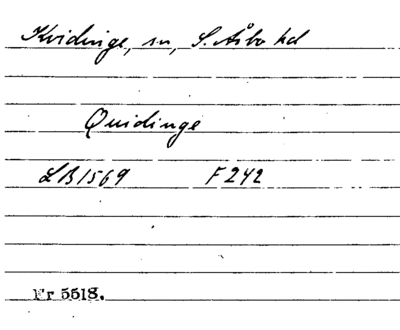 Kvidinge, sn, S. Åsbo hd
Quidinge
LB 1569 F 242
Fr 5518.